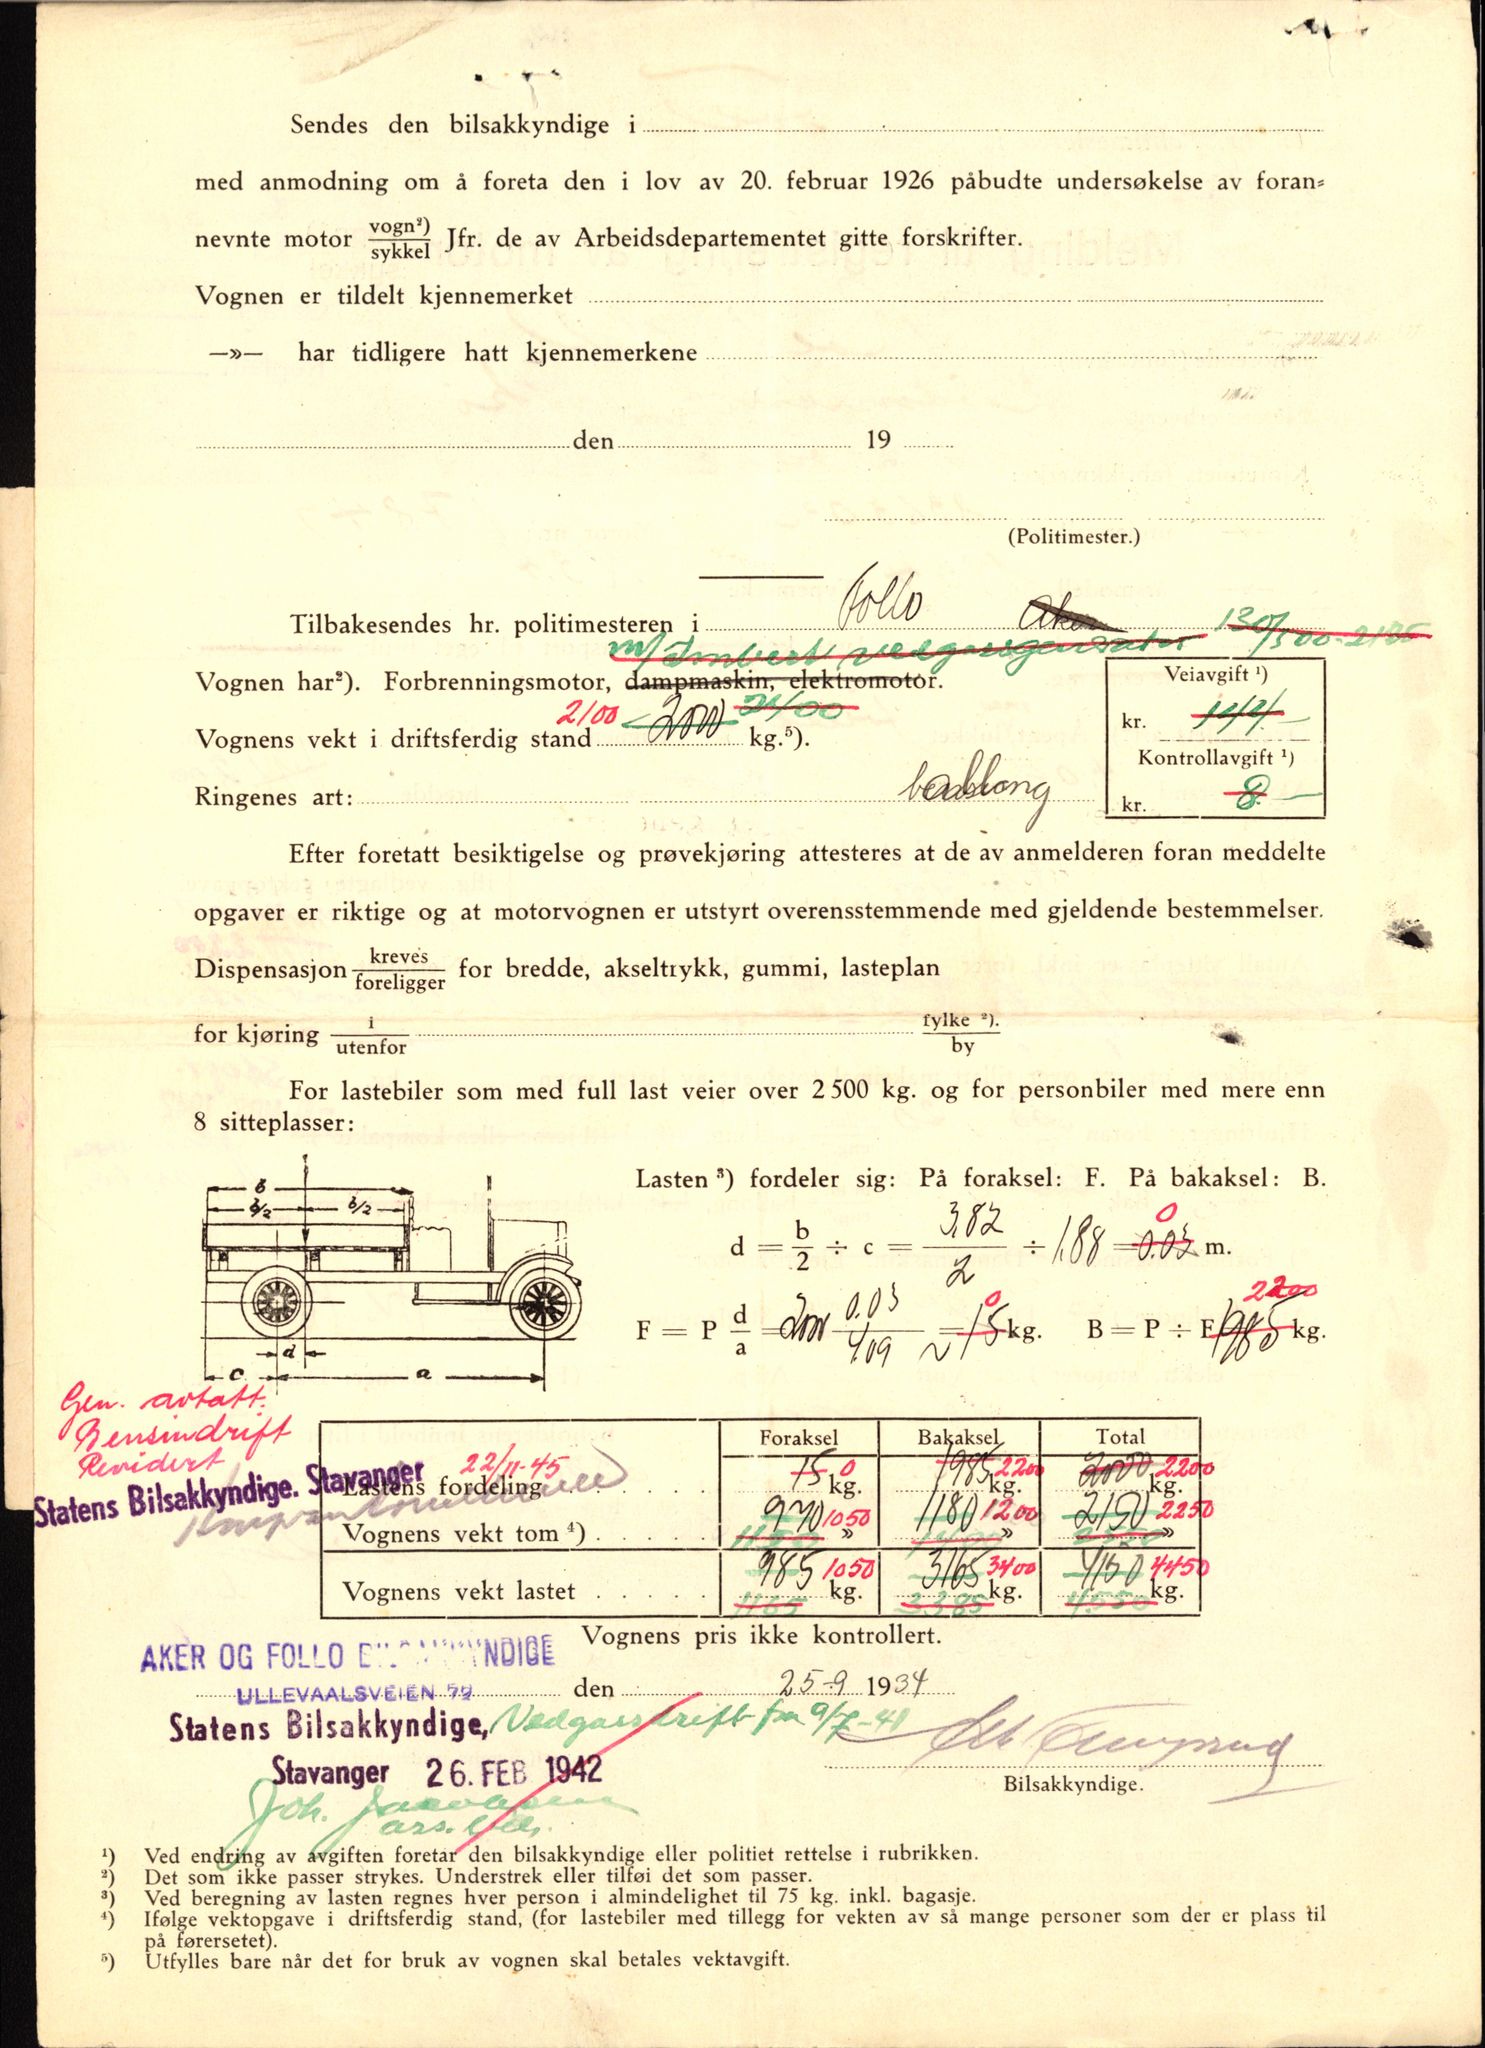 Sendes den bilsakkyndige i
med anmodning om å foreta den i lov av 20. februar 1926 påbudte undersøkelse av foran=
nevnte motor vogn²)/sykkel Jfr. de av Arbeidsdepartementet gitte forskrifter.
Vognen er tildelt kjennemerket
—»— har tidligere hatt kjennemerkene
den 19
(Politimester.)
Tilbakesendes hr. politimesteren i Follo Aker
m/ Imbert vedgassgenerator 130/500-2185
Vognen har²). Forbrenningsmotor, dampmaskin, elektromotor.
Veiavgift ¹)
2100 2000 2100
Vognens vekt i driftsferdig stand kg.⁵).
kr.
Kontrollavgift ¹)
Ringenes art: ballong
kr. 8.—
Efter foretatt besiktigelse og prøvekjøring attesteres at de av anmelderen foran meddelte
opgaver er riktige og at motorvognen er utstyrt overensstemmende med gjeldende bestemmelser.
Dispensasjon kreves/foreligger for bredde, akseltrykk, gummi, lasteplan
for kjøring i/utenfor fylke ²)./by
For lastebiler som med full last veier over 2 500 kg. og for personbiler med mere enn
8 sitteplasser:
Lasten ³) fordeler sig: På foraksel: F. På bakaksel: B.
d = b/2 ÷ c = 3,82/2 ÷ 1,88 = 0.03 0 m.
F = P d/a = 2000 0.03/4,09 = ~15 0 kg. B = P ÷ F 1985 2200 kg.
b
b/2 b/2
d
c a
Gen. avtatt.
Bensindrift
Revidert
Foraksel Bakaksel Total
22/11-45
Statens Bilsakkyndige. Stavanger
Lastens fordeling . . . . . 15 0 kg. 1985 2200 kg. 2000 2200 kg.
Vognens vekt tom ⁴) . . . . 970 1050 » 1180 1200 » 2150 2250 »
Vognens vekt lastet . . . . . 985 1050 kg. 3165 3400 kg. 4150 4450 kg.
1165 3385 4550
Vognens pris ikke kontrollert.
AKER OG FOLLO BILSAKKYNDIGE
ULLEVAALSVEIEN 59 den 25-9 1934
Statens Bilsakkyndige, Vedgassdrift fra 9/7-41
Stavanger 26. FEB 1942
Bilsakkyndige.
Joh. Jacobsen
ass.
¹) Ved endring av avgiften foretar den bilsakkyndige eller politiet rettelse i rubrikken.
²) Det som ikke passer strykes. Understrek eller tilføi det som passer.
³) Ved beregning av lasten regnes hver person i almindelighet til 75 kg. inkl. bagasje.
⁴) Ifølge vektopgave i driftsferdig stand, (for lastebiler med tillegg for vekten av så mange personer som der er plass til
på førersetet).
⁵) Utfylles bare når det for bruk av vognen skal betales vektavgift.